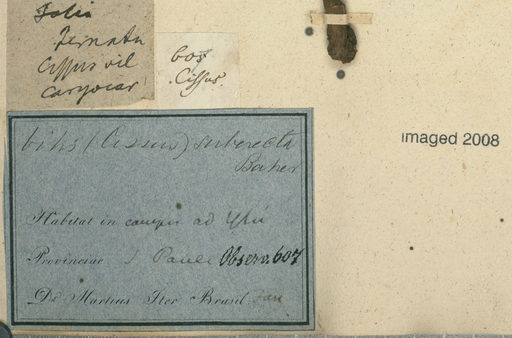 Folia
Ternata
Cissus vel
caryocar
607
Cissus.
Vitis (Cissus) suberecta
Baker
Imaged 2008
Habitat in campis ad Ytú
Provinciae S. Pauli Observ. 607
Dr. Martius Iter Brasil.